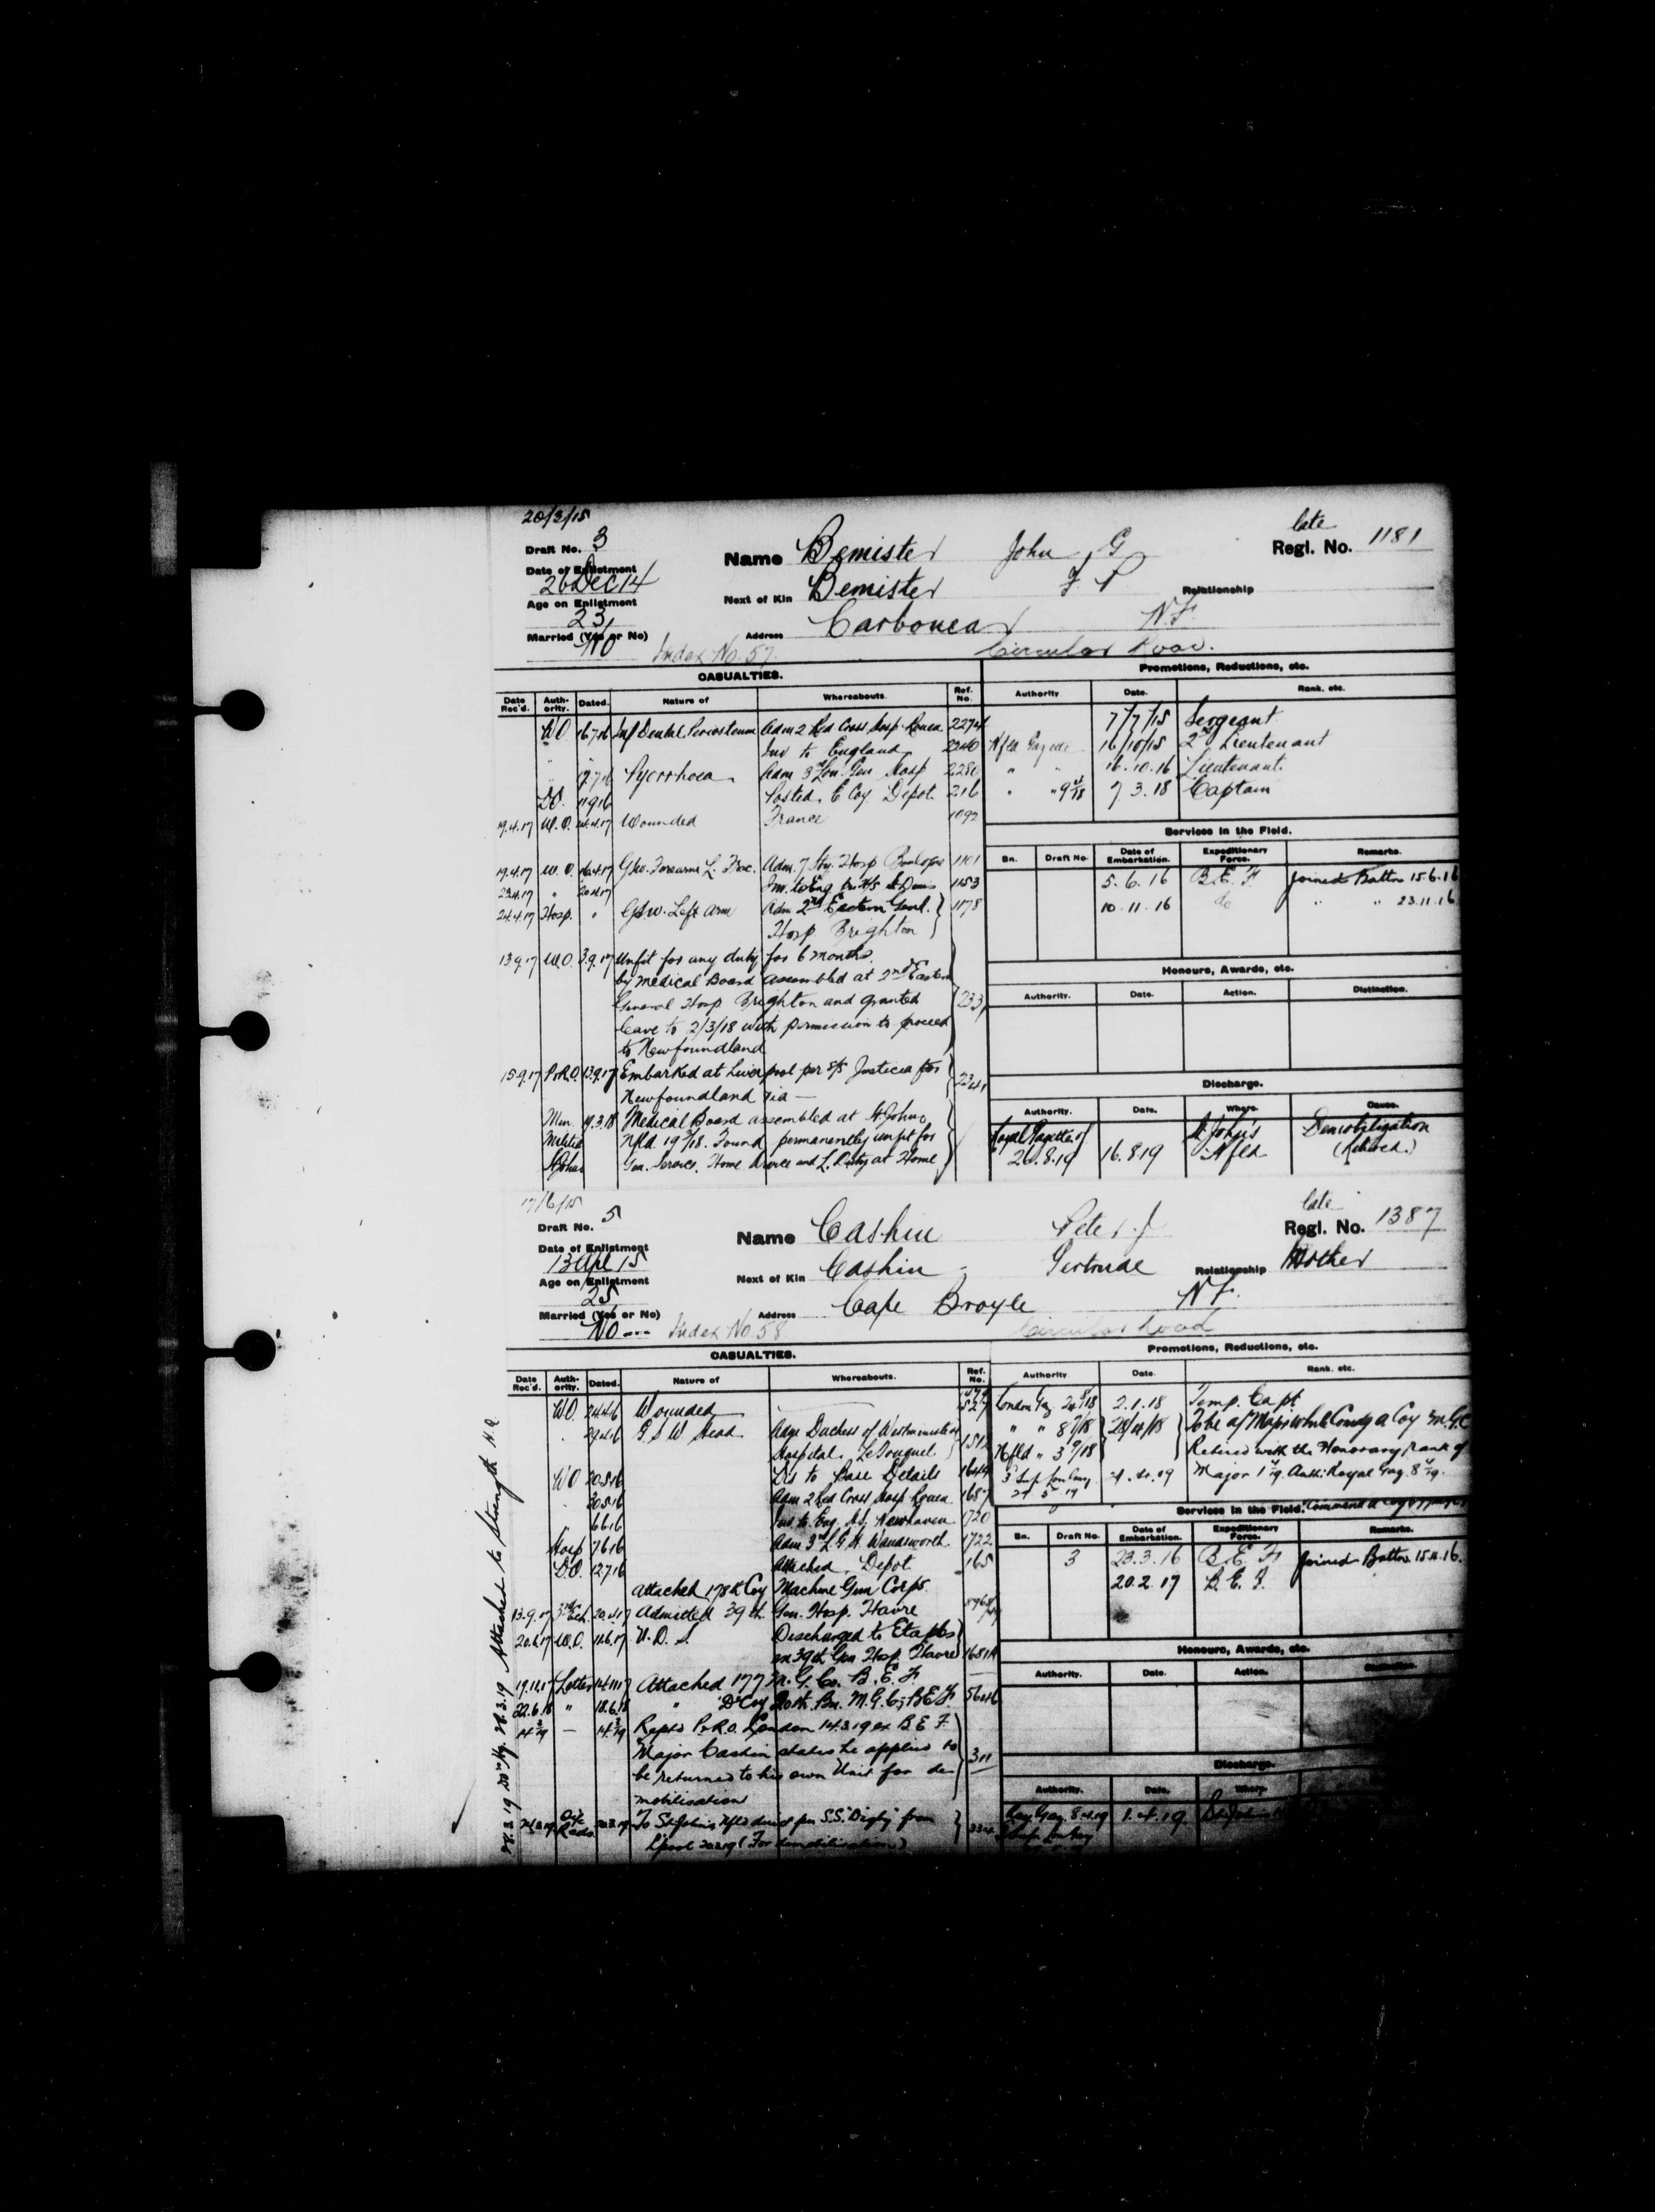 20/3/15
Draft No. 3
Name Bemister John G
late
Regl. No. 1181
Date of Enlistment
26 Dec 14
Next of Kin Bemister F. P. Relationship
Age on Enlistment
23
Address Carbonear N.F.
Married (Yes or No)
No
Index No. 57. Circular Road.
CASUALTIES.
Date Rec'd. Auth-ority. Dated. Nature of Whereabouts. Ref. No.
W.O. 16.7.16 Inf Dental Periosteum Adm 2 Red Cross Hosp Rouen 2274
" " Inv to England 2240
" 19.7.16 Pyorrhoea Adm 3rd Lon. Gen Hosp 2280
D.O. 11.9.16 Posted. E Coy Depot. 216
19.4.17 W.O. 14.4.17 Wounded France 1092
19.4.17 W.O. 16.4.17 GSW. Forearm L. Frac. Adm. 7 Sty. Hosp Boulogne 1101
23.4.17 " 20.4.17 Inv. to Eng. 1153
24.4.17 Hosp. " GSW. Left Arm Adm 2nd Eastern Genl. 1178
Hosp Brighton
13.9.17 W.O. 3.9.17 Unfit for any duty for 6 months.
by medical Board assembled at 2nd Eastern
General Hosp Brighton and granted 233
leave to 2/3/18 with permission to proceed
to Newfoundland
15.9.17 P.&R.O. 13.9.17 Embarked at Liverpool per S/S Justicia for
Newfoundland via — 2341
Min. 19.3.18 Medical Board assembled at St. Johns
Militia Nfld. 19/3/18. Found permanently unfit for
St Johns Gen. Service. Home Service and L. Duty at Home
Promotions, Reductions, etc.
Authority. Date. Rank. etc.
7/7/15 Sergeant
Nfld Gazette 16/10/15 2nd Lieutenant
" " 16.10.16 Lieutenant.
" " 9/4/18 7.3.18 Captain
Services in the Field.
Bn. Draft No. Date of Embarkation. Expeditionary Force. Remarks.
5.6.16 B.E.F. Joined Battn 15.6.16
10.11.16 do " " 23.11.16
Honours, Awards, etc.
Authority. Date. Action. Distinction.
Discharge.
Authority. Date. Where. Cause.
Royal Gazette of St. John's Demobilization
26.8.19 16.8.19 Nfld (Retired.)
17/6/15
Draft No. 5
Name Cashin Peter J
late
Regl. No. 1387
Date of Enlistment
13 Apl 15
Next of Kin Cashin Gertrude Relationship Mother
Age on Enlistment
25
Address Cape Broyle N.F.
Married (Yes or No)
No
Index No. 58. Circular Road
CASUALTIES.
Date Rec'd. Auth-ority. Dated. Nature of Whereabouts. Ref. No.
W.O. 24.4.16 Wounded 1527
" 29.4.16 G S W Head Adm Duchess of Westminster
Hospital. Le Touquet 1512
W.O. 20.5.16 Dis to Base Details 1644
" 30.5.16 Adm 2 Red Cross Hosp Rouen 1687
6.6.16 Inv to Eng. H.S. Newhaven 1720
Hosp 7.6.16 Adm 3rd L.G.H. Wandsworth. 1722
D.O. 12.7.16 Attached. Depot. 165
Attached 178th Coy Machine Gun Corps.
13.9.17 3rd Ech. 20.4.17 Admitted 39th. Gen. Hosp. Havre
20.6.17 W.O. 11.6.17 V.D.S. Discharged to Etaples
ex 39th Gen Hosp. Havre
19.11.17 Letter 14.11.17 Attached 177 M.G. Co. B.E.F.
22.6.18 " 18.6.18 " "D" Coy 20th. Bn. M.G.C, B.E.F. 5646
14/3/19 — 14/3/19 Reptd P.&R.O. London 14.3.19 ex B.E.F.
Major Cashin states he applied to 311
be returned to his own Unit for de-
mobilisation
To St Johns Nfld direct per S.S. "Digby" from
L'pool (For demobilisation)
28.3.19 28.3.19 Attached to strength H.Q.
Promotions, Reductions, etc.
Authority Date. Rank. etc.
London Gaz. 2.1.18 Temp. Capt
" " To be a/Major while Comdg a Coy M.G.C
Nfld " Retired with the Honorary rank of
Major Auth: Royal Gaz.
Services in the Field.
Bn. Draft No. Date of Embarkation. Expeditionary Force. Remarks.
3 23.3.16 B.E.F. Joined Battn 15.4.16.
20.2.17 B.E.F.
Honours, Awards, etc.
Authority. Date. Action.
Discharge.
Authority. Date. Where.
Roy Gaz. 8.4.19 1.4.19. St Johns